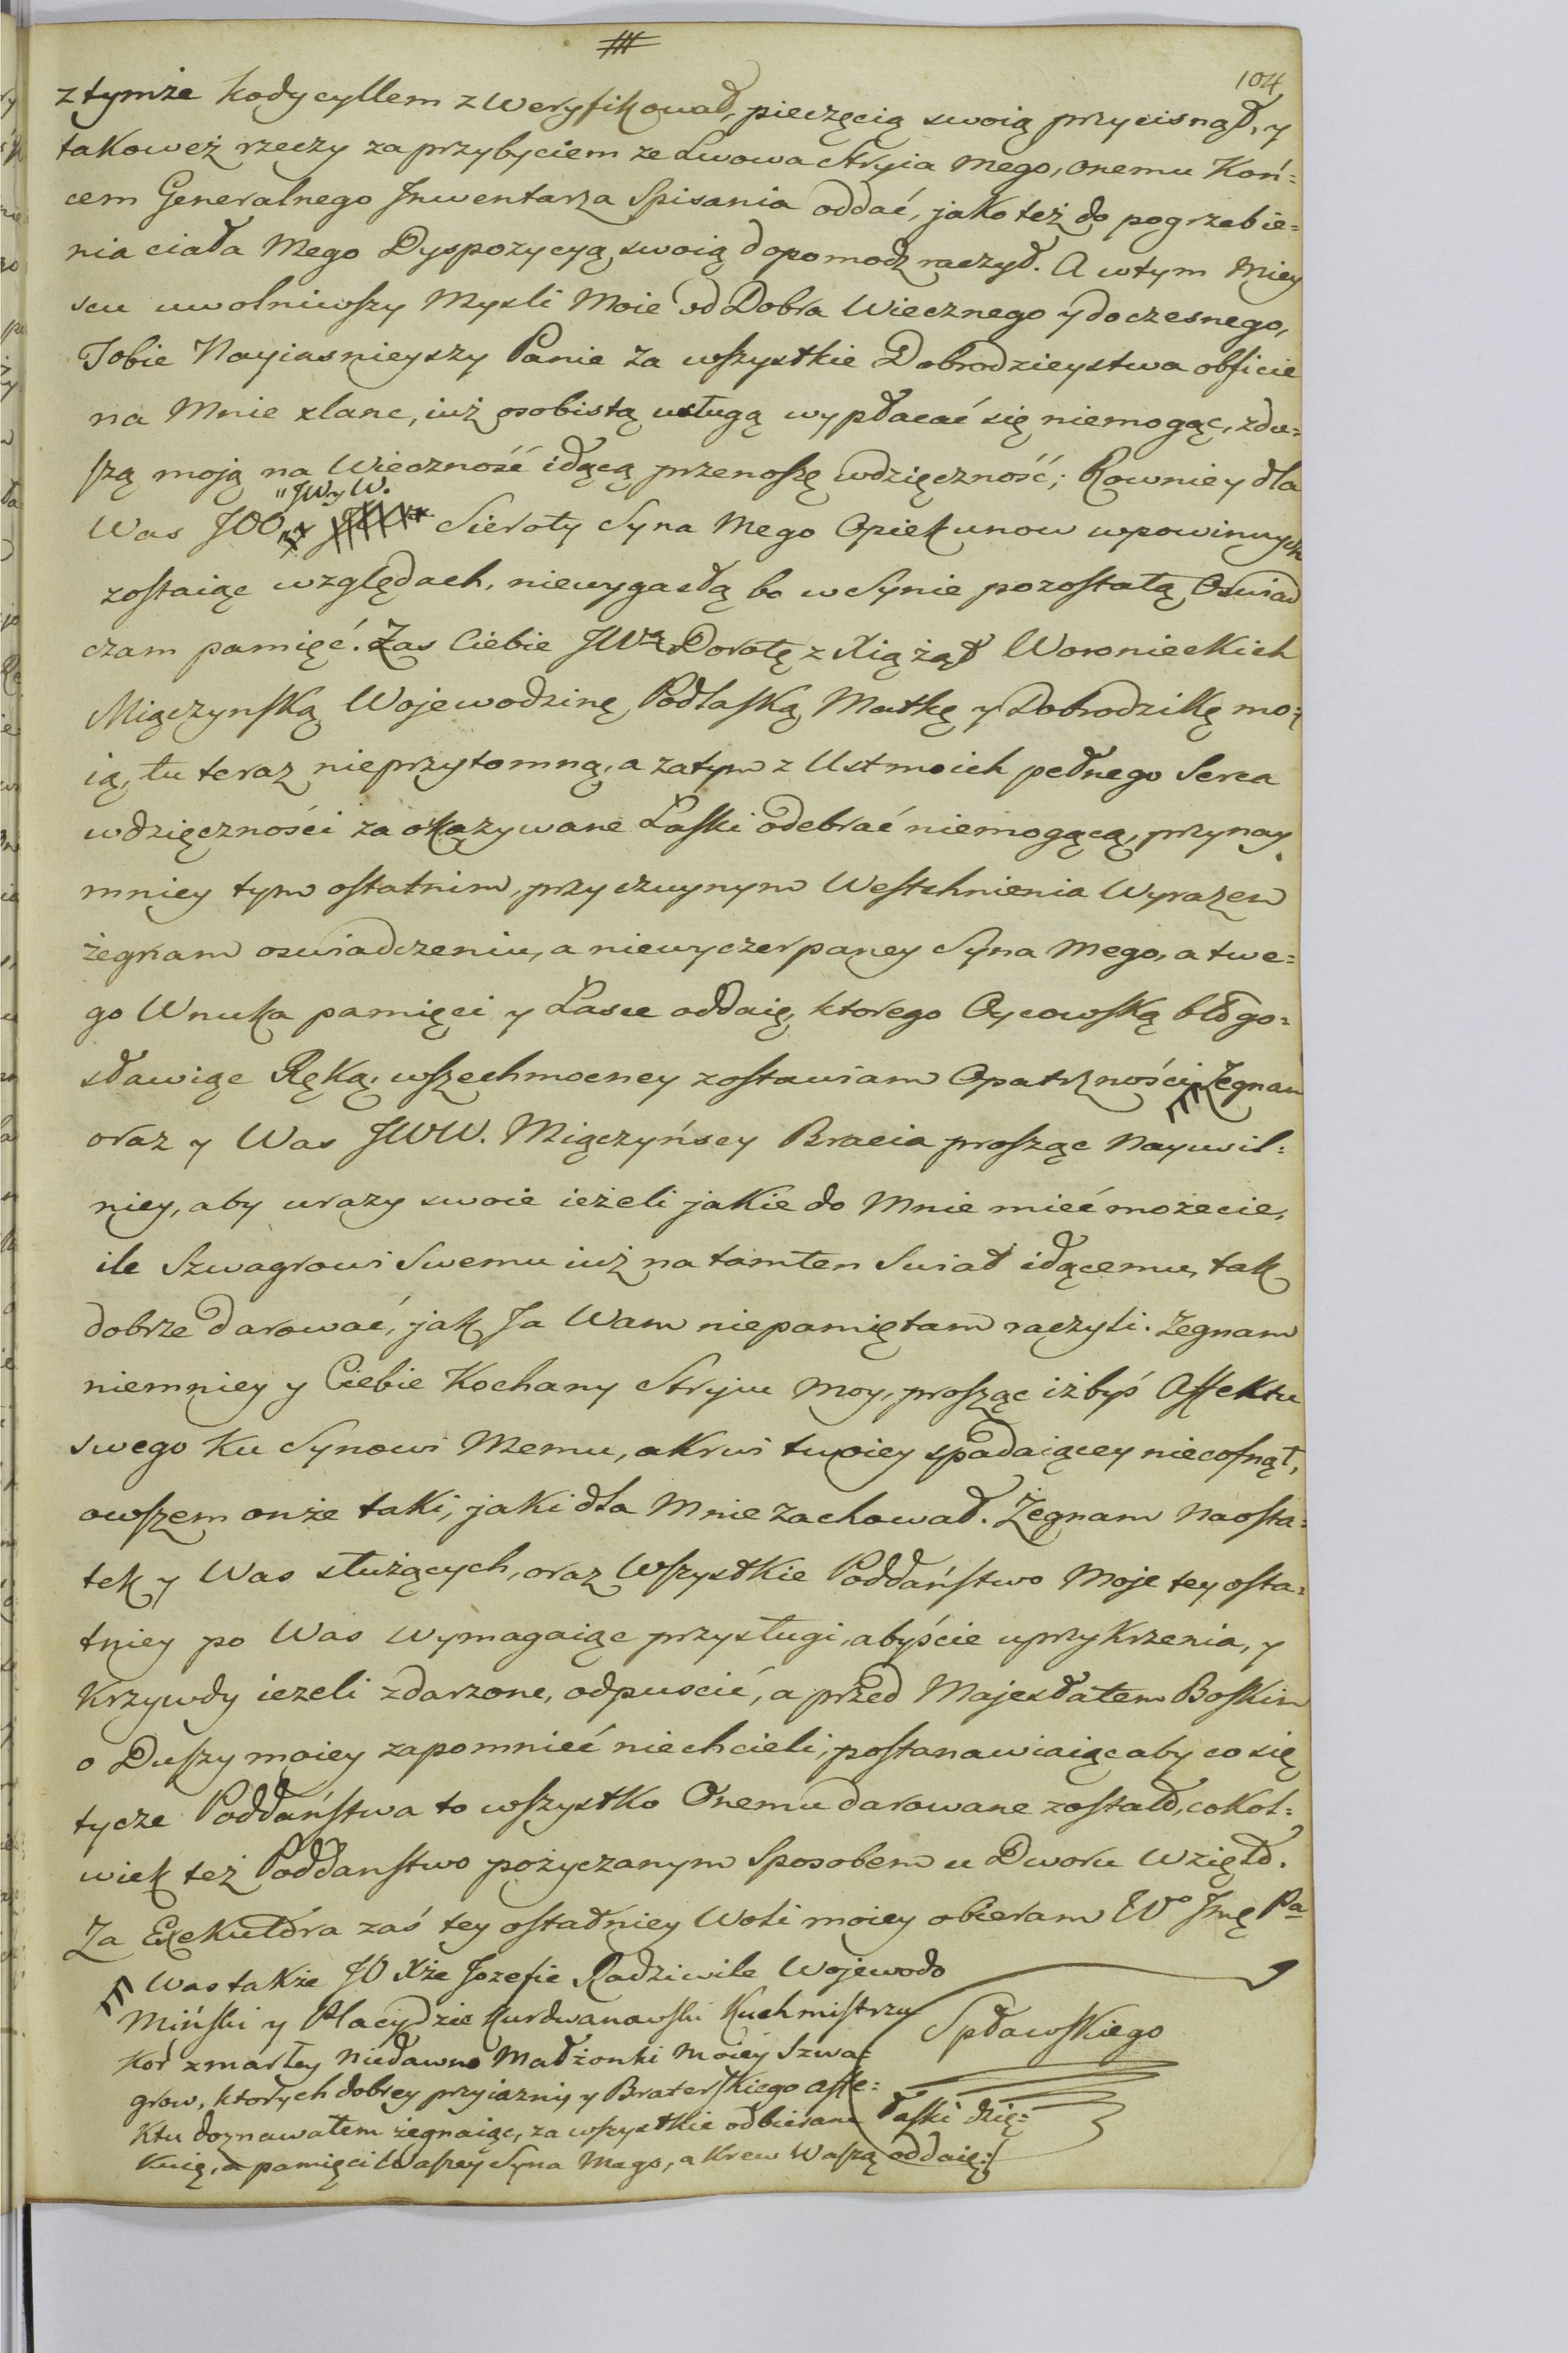 104
z tymże kodycyllem zweryfikował, pieczęcią swoią przycisnął, y
takoweż rzeczy za przybyciem ze Lwowa Stryia mego, onemu koń=
cem Generalnego Inwentarza Spisania oddać, jako też do pogrzebie=
nia ciała Mego Dyspozycyą swoią dopomodz raczył. A w tym Miey
scu uwolniwszy Mysli Moie od Dobra Wiecznego y doczesnego,
Tobie Nayiasnieyszy Panie za wszystkie Dobrodzieystwa obficie
na Mnie zlane, iuż osobistą usługą wypłacać się niemogąc, z du=
szą moją na Wieczność idącą przenoszę wdzięczność; Rowniey dla
"JWy W.
Was JOO. Sieroty Syna Mego Opiekunow w powinnych
zostaiąc względach, niewygasłą bo w Synie pozostałą Oswiad
czam pamięć. Zas Ciebie JWą Dorotę z Xiążąt Woronieckich
Miączynską Wojewodzinę Podlaską Matkę y Dobrodzikę mo=
ią, tu teraz nieprzytomną, a zatym z Ust moich pełnego Serca
wdzięczności za okazywane Łaski odebrać niemogącą, przynay
mniey tym ostatnim, przyczynym Westchnienia Wyrazem
żegnam oswiadczeniu, a niewyczerpaney Syna Mego, a twe=
go Wnuka pamięci y Łasce oddaię, ktorego Oycowską błogo=
sławiąc Ręką, wszechmocney zostawiam Opatrzności Żegnam
oraz y Was JWW. Miączyńscy Bracia prosząc Nayusil=
niey, aby urazy swoie ieżeli jakie do Mnie mieć możecie,
ile Szwagrowi Swemu iuż na tamten Swiat idącemu, tak
dobrze darować, jak Ja Wam niepamiętam raczyli. Żegnam
niemniey y Ciebie Kochany Stryiu Moy, prosząc iżbyś Affektu
swego Ku Synowi Memu, a Krwi twoiey spadaiącey niecofnął,
owszem onże taki, jaki dla Mnie zachował. Żegnam Naosta=
tek y Was służących, oraz Wszystkie Poddaństwo Moje tey osta=
tniey po Was wymagaiąc przysługi, abyście uprzykrzenia, y
Krzywdy ieżeli zdarzone, odpuscić, a przed Majestatem Boskim
o Duszy moiey zapomnieć niechcieli, postanawiaiąc aby co się
tycze Poddaństwa to wszystko Onemu darowane zostało, cokol=
wiek też Poddanstwo pożyczanym Sposobem u Dworu wzięło.
Za Exekutora zaś tey ostatniey Woli moiey obieram Wo Jmę Pa
Spławskiego
Was także JO Xże Jozefie Radziwile Wojewodo
Miński y Placydzie Kurdwanowski Kuchmistrzu
Kor zmarłey niedawno Małżonki Moiey Szwa=
grow, ktorych dobrey przyiazni y Braterskiego affe=
Ktu doznawałem żegnaiąc, za wszystkie odbierane łaski dzię=
Kuię, a pamięci Waszey Syna Mego, a Krew Waszą oddaię:/